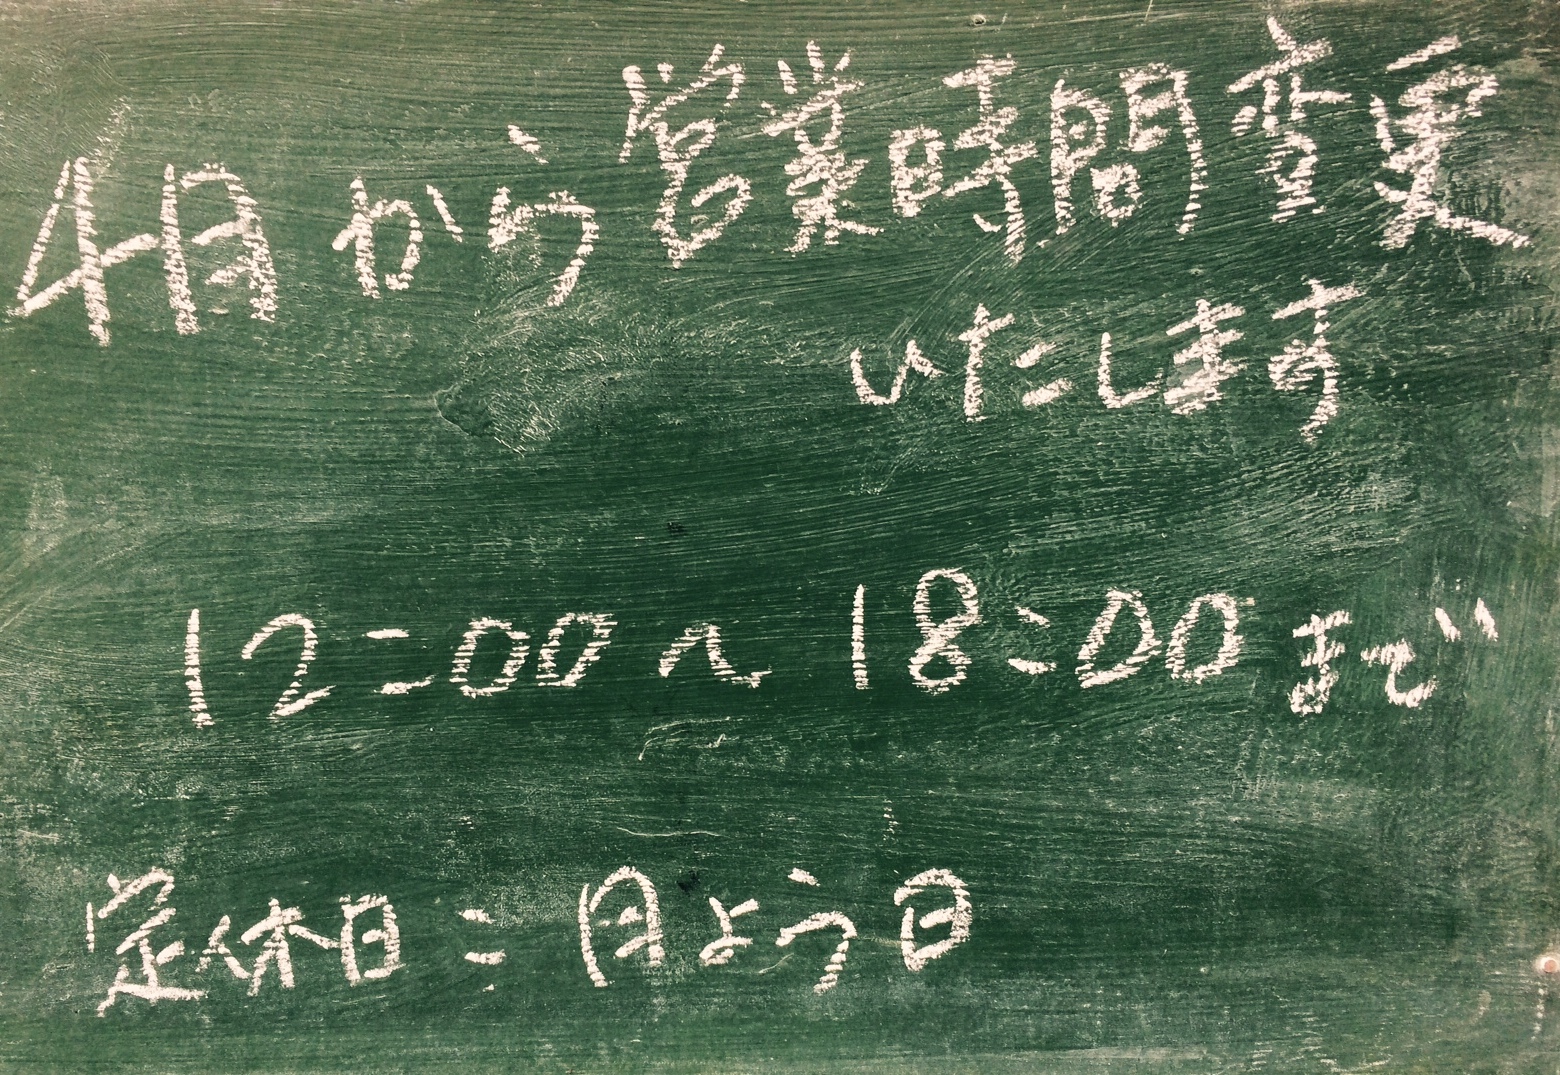 4月から営業時間変更
いたします
12:00〜18:00まで
定休日:月よう日